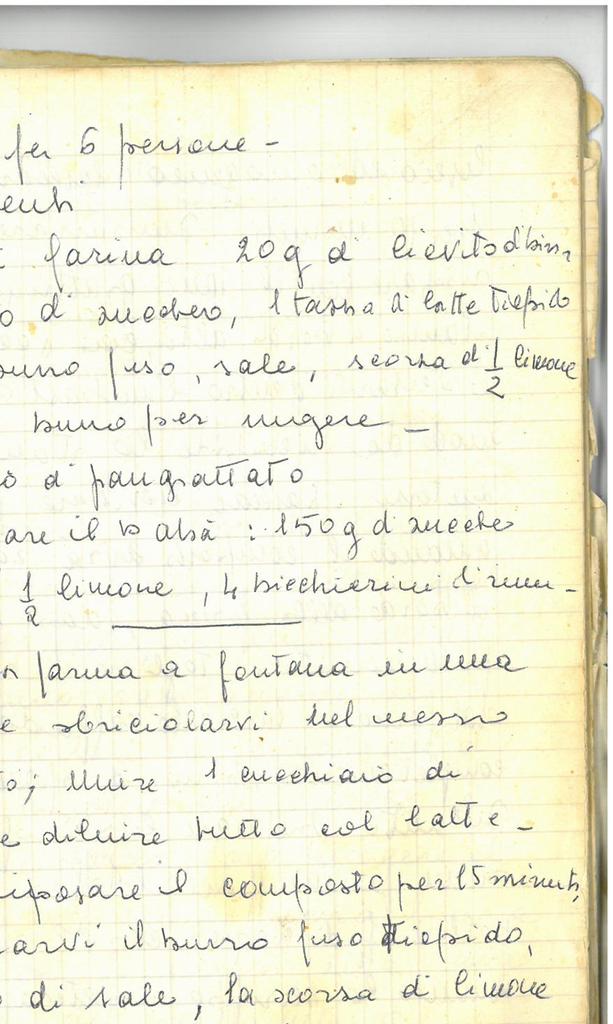 per 6 persone -
enti
farina 20g di lievito di bir-
o di zucchero, 1 tassa di latte tiepido
burro fuso, sale, scorsa di 1/2 limone
burro per ungere -
o di pangrattato
are il babà : 150g di zucche
1/2 limone, 4 bicchierini di rum -
farina a fontana in una
e sbriciolarvi nel messo
to; Unire 1 cucchiaio di
e diluire tutto col latte -
iposare il composto per 15 minuti,
arvi il burro fuso tiepido,
o di sale, la scorsa di limone